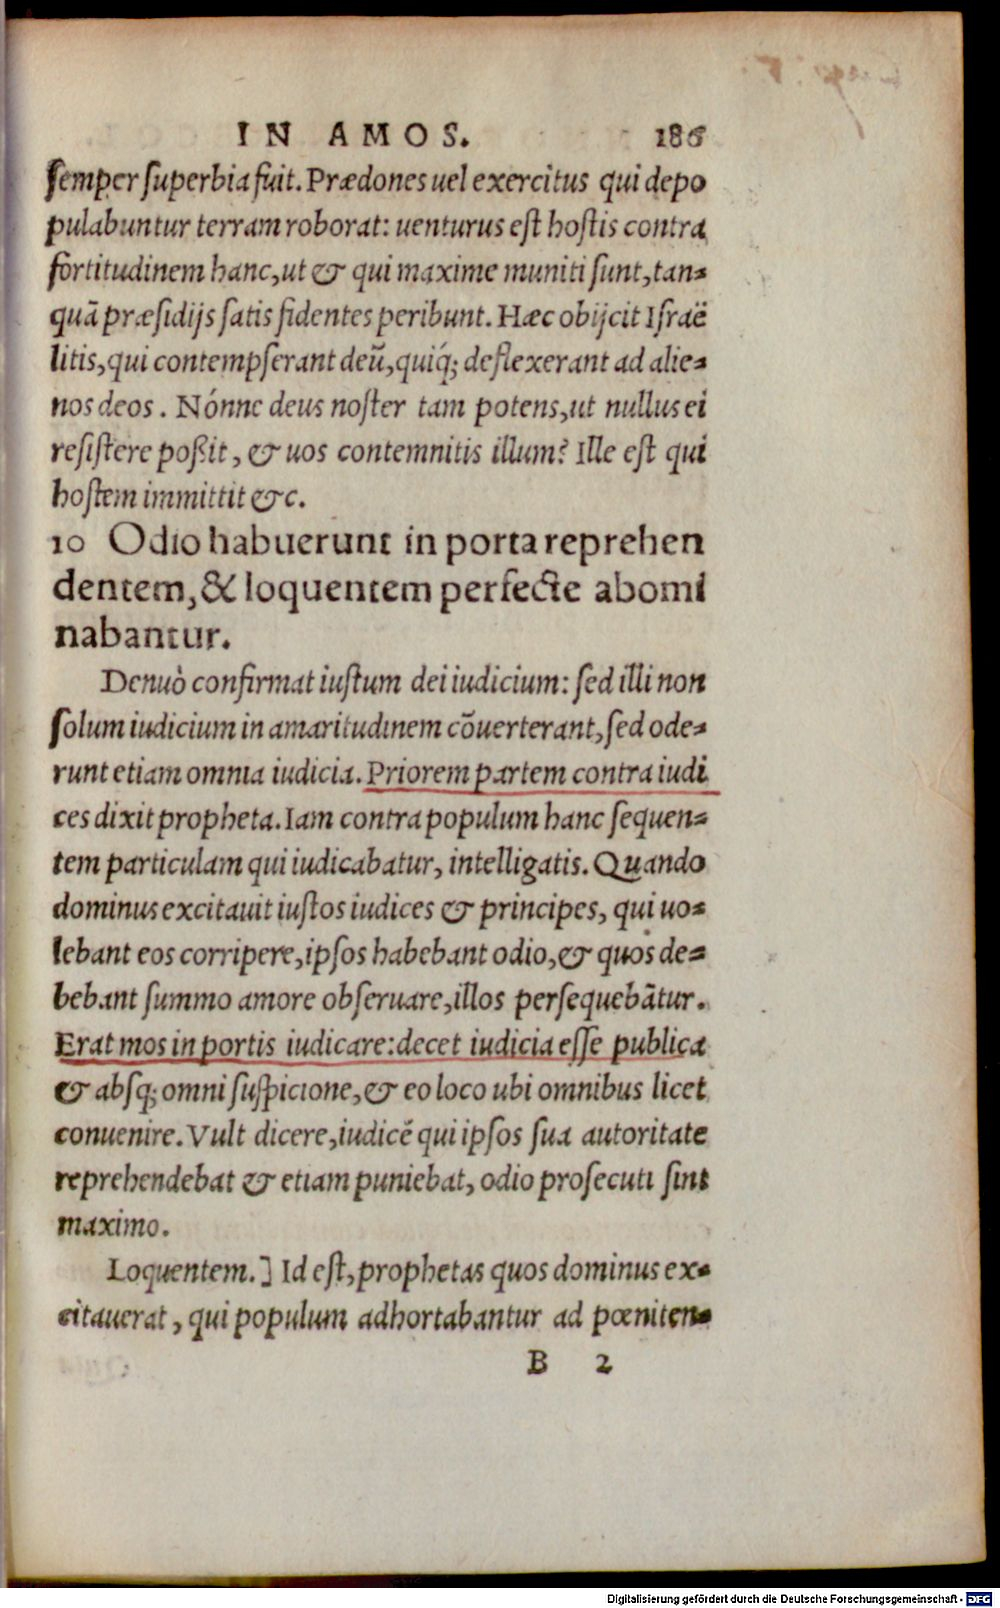 IN AMOS. 186
semper superbia fuit. Prædones uel exercitus qui depo
pulabuntur terram roborat: uenturus est hostis contra
fortitudinem hanc, ut & qui maxime muniti sunt, tan-
quã præsidijs satis fidentes peribunt. Hæc obijcit Israë
litis, qui contempserant deũ, quiq́; deflexerant ad alie-
nos deos. Nónne deus noster tam potens, ut nullus ei
resistere poßit, & uos contemnitis illum? Ille est qui
hostem immittit &c.
10 Odio habuerunt in porta reprehen
dentem, & loquentem perfecte abomi
nabantur.
Denuò confirmat iustum dei iudicium: sed illi non
solum iudicium in amaritudinem cõuerterant, sed ode-
runt etiam omnia iudicia. Priorem partem contra iudi
ces dixit propheta. Iam contra populum hanc sequen-
tem particulam qui iudicabatur, intelligatis. Quando
dominus excitauit iustos iudices & principes, qui uo-
lebant eos corripere, ipsos habebant odio, & quos de-
bebant summo amore obseruare, illos persequebãtur.
Erat mos in portis iudicare: decet iudicia esse publica
& absq; omni suspicione, & eo loco ubi omnibus licet
conuenire. Vult dicere, iudicẽ qui ipsos sua autoritate
reprehendebat & etiam puniebat, odio prosecuti sint
maximo.
Loquentem.] Id est, prophetas quos dominus ex-
citauerat, qui populum adhortabantur ad pœniten-
B 2
Digitalisierung gefördert durch die Deutsche Forschungsgemeinschaft - DFG